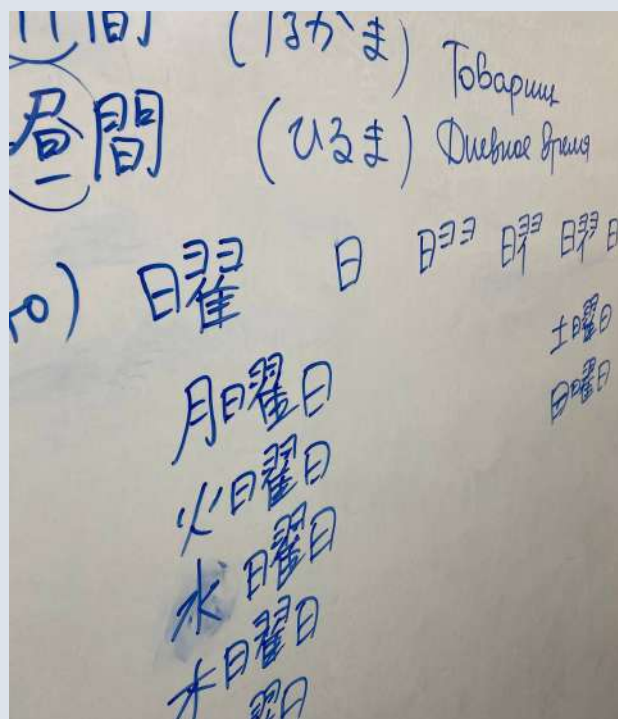 間 (なかま) Товарищ
昼間 (ひるま) Дневное время
曜 日 日ヨヨ
土曜日
日曜日
月曜日
火曜日
水曜日
木曜日
曜日